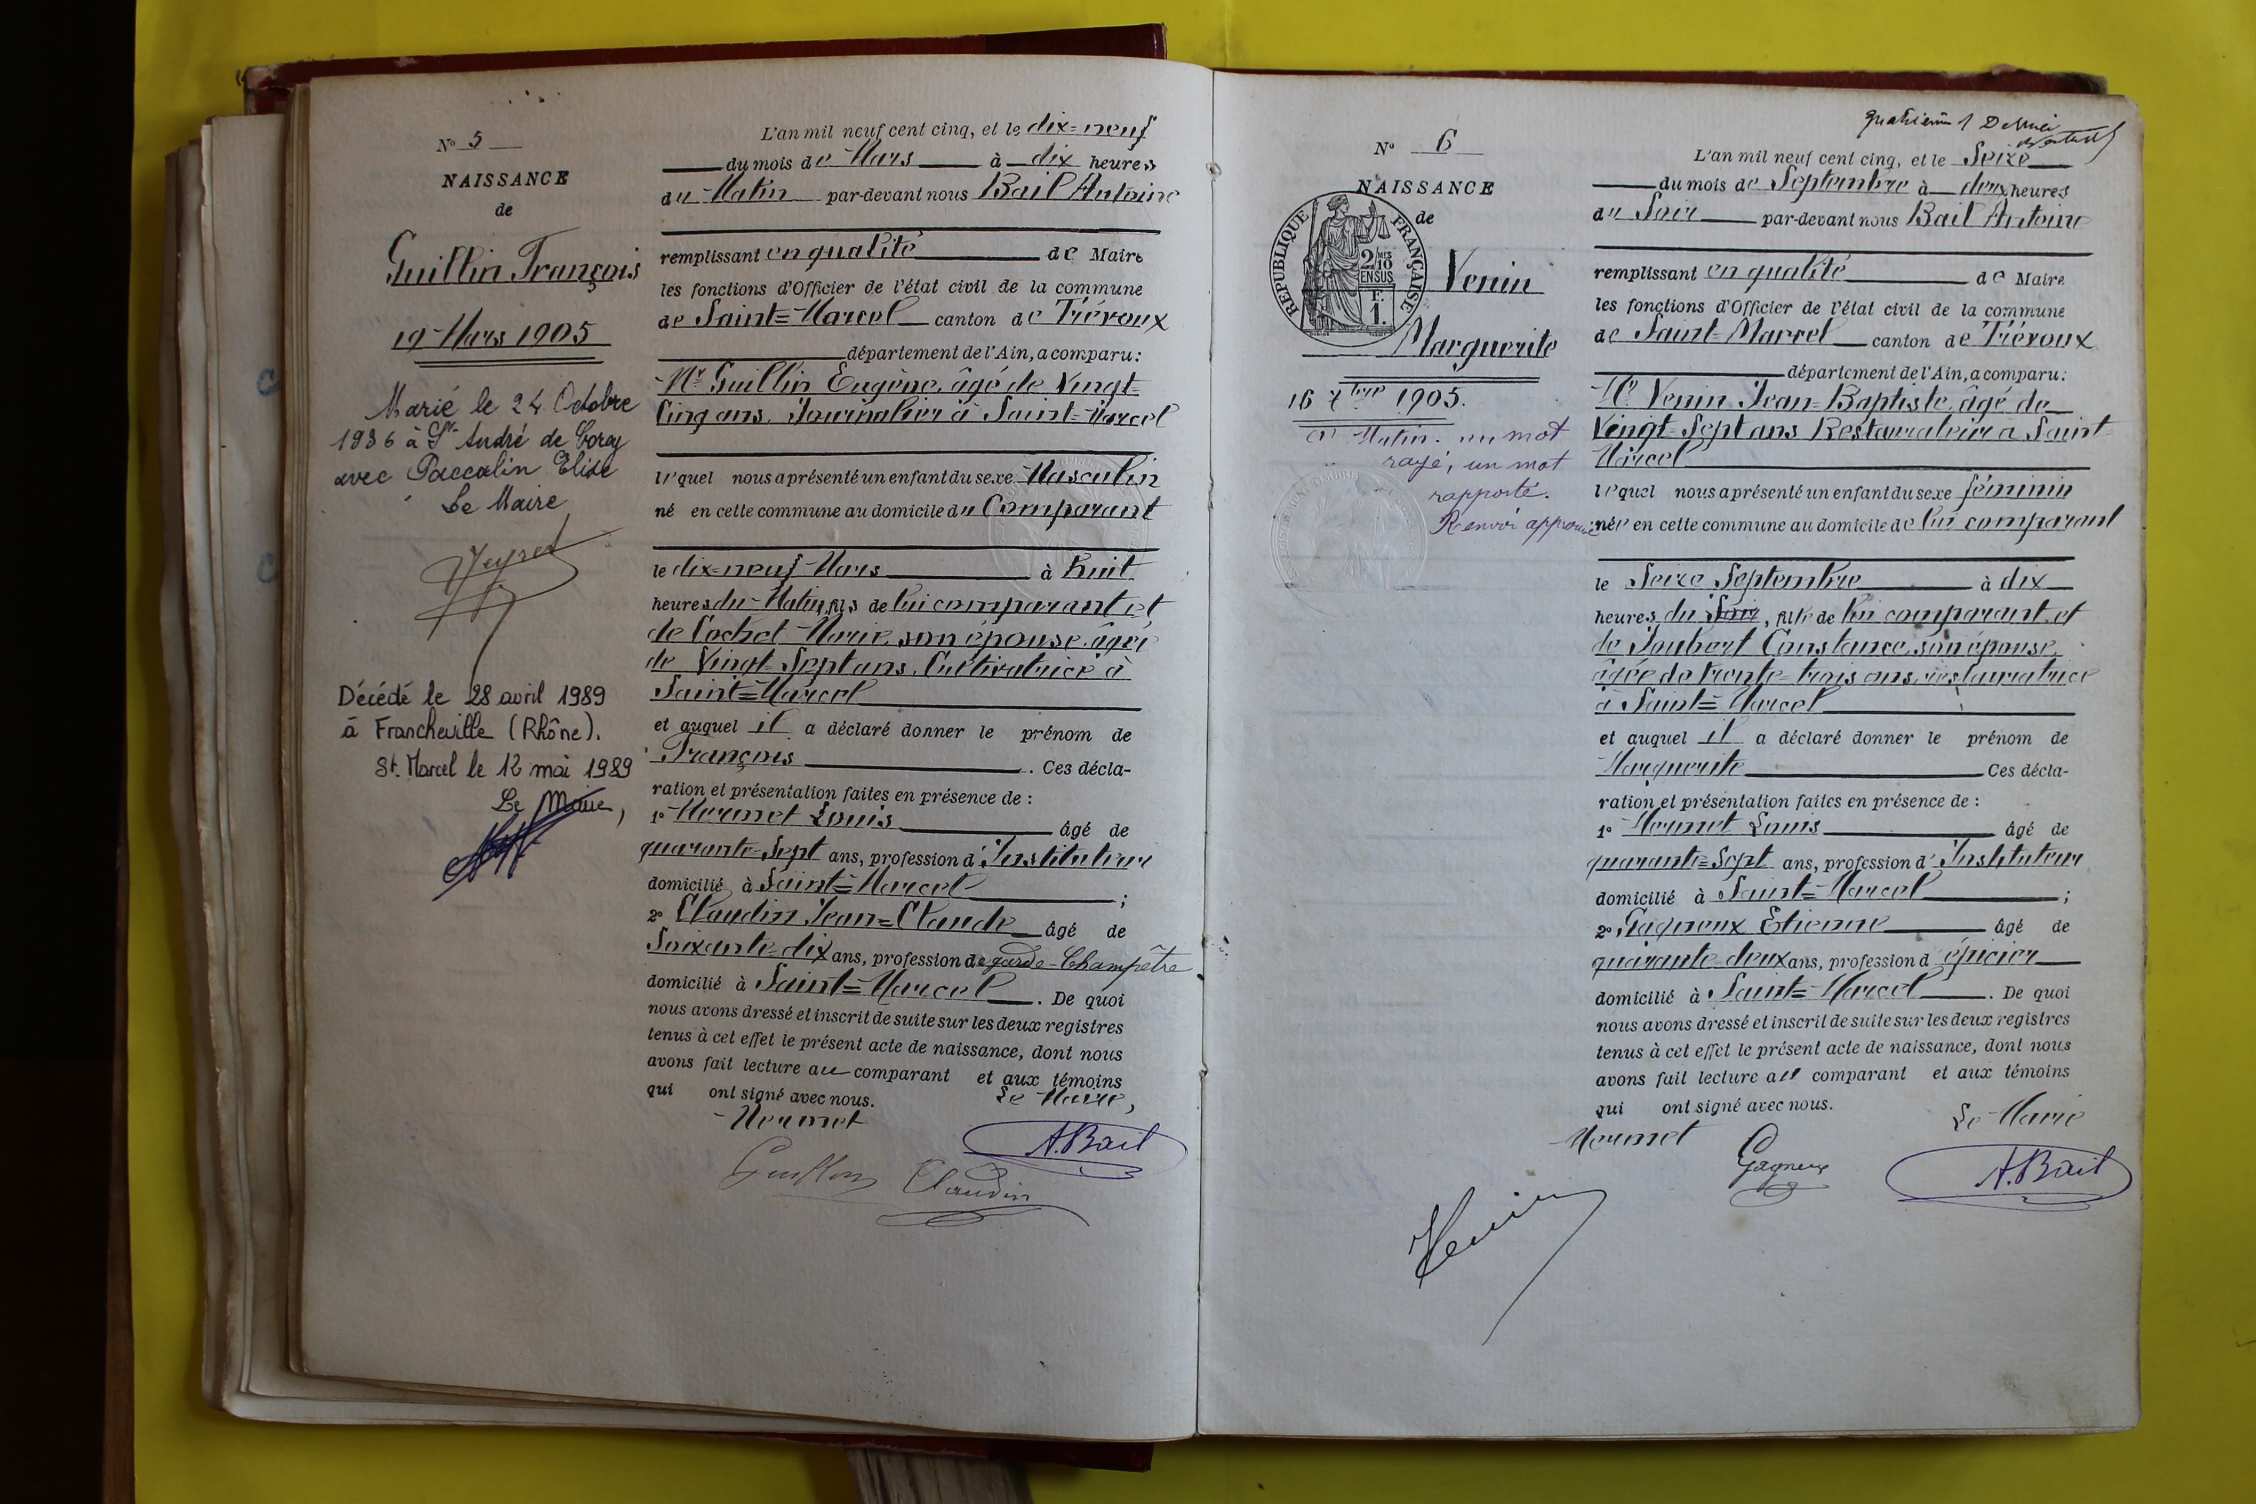 N° 5
NAISSANCE
de
Guillin François
19 Mars 1905
Marié le 24 Octobre
1936 à St André de Corcy
avec Paccalin Elise
Le Maire
Décédé le 28 avril 1989
à Francheville (Rhône).
St. Marcel le 12 mai 1989
Le Maire,
L'an mil neuf cent cinq, et le dix=neuf
du mois de Mars à dix heures
du Matin par-devant nous Bail Antoine
remplissant en qualité de Maire
les fonctions d'Officier de l'état civil de la commune
de Saint=Marcel canton de Trévoux
département de l'Ain, a comparu:
Mr Guillin Eugène, âgé de Vingt-
Cinq ans, Journalier à Saint=Marcel
lequel nous a présenté un enfant du sexe Masculin
né en cette commune au domicile du Comparant
le dix=neuf Mars à huit
heures du Matin, fils de lui comparant et
de Cochet Marie, son épouse, âgée
de Vingt-Sept ans, Cultivatrice à
Saint=Marcel
et auquel il a déclaré donner le prénom de
François. Ces décla-
ration et présentation faites en présence de :
1° Mermet Louis âgé de
quarante-Sept ans, profession d'Instituteur
domicilié à Saint=Marcel ;
2° Claudin Jean=Claude âgé de
Soixante-dix ans, profession de garde-Champêtre
domicilié à Saint=Marcel. De quoi
nous avons dressé et inscrit de suite sur les deux registres
tenus à cet effet le présent acte de naissance, dont nous
avons fait lecture au comparant et aux témoins
qui ont signé avec nous. Le Maire,
Mermet
A. Bail
Guillin Claudin
N° 6
NAISSANCE
de
RÉPUBLIQUE FRANÇAISE
2/10 MES
EN SUS
F.
1.
Venin
Marguerite
16 7bre 1905.
Matin. un mot
rayé, un mot
rapporté.
Renvoi approuvé
Quatrième & Dernier
L'an mil neuf cent cinq, et le Seize
du mois de Septembre à deux heures
du Soir par-devant nous Bail Antoine
remplissant en qualité de Maire
les fonctions d'Officier de l'état civil de la commune
de Saint-Marcel canton de Trévoux
département de l'Ain, a comparu:
Mr Venin Jean=Baptiste, âgé de
Vingt-Sept ans Restaurateur à Saint-
Marcel
lequel nous a présenté un enfant du sexe féminin
née en cette commune au domicile de lui comparant
le Seize Septembre à dix
heures du Soir, fille de lui comparant et
de Joubert Constance, son épouse,
âgée de trente-trois ans, restauratrice
à Saint=Marcel
et auquel il a déclaré donner le prénom de
Marguerite Ces décla-
ration et présentation faites en présence de :
1° Mermet Louis âgé de
quarante=Sept ans, profession d'Instituteur
domicilié à Saint=Marcel ;
2° Gagneux Etienne âgé de
quarante-deux ans, profession d'épicier
domicilié à Saint=Marcel. De quoi
nous avons dressé et inscrit de suite sur les deux registres
tenus à cet effet le présent acte de naissance, dont nous
avons fait lecture au comparant et aux témoins
qui ont signé avec nous. Le Maire
Mermet Gagneux
A. Bail
Venin